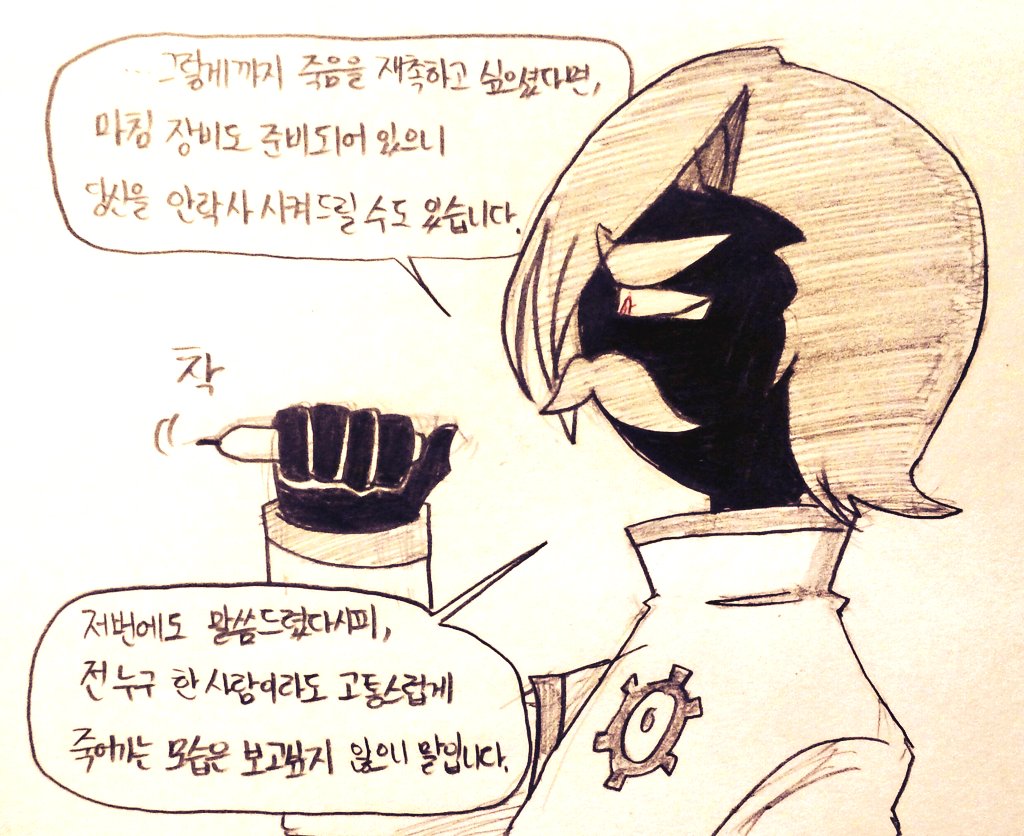 ...그렇게까지 죽음을 재촉하고 싶으셨다면,
마침 장비도 준비되어 있으니
당신을 안락사 시켜드릴 수도 있습니다.
착
저번에도 말씀드렸다시피,
전 누구 한 사람이라도 고통스럽게
죽어가는 모습은 보고싶지 않으니 말입니다.